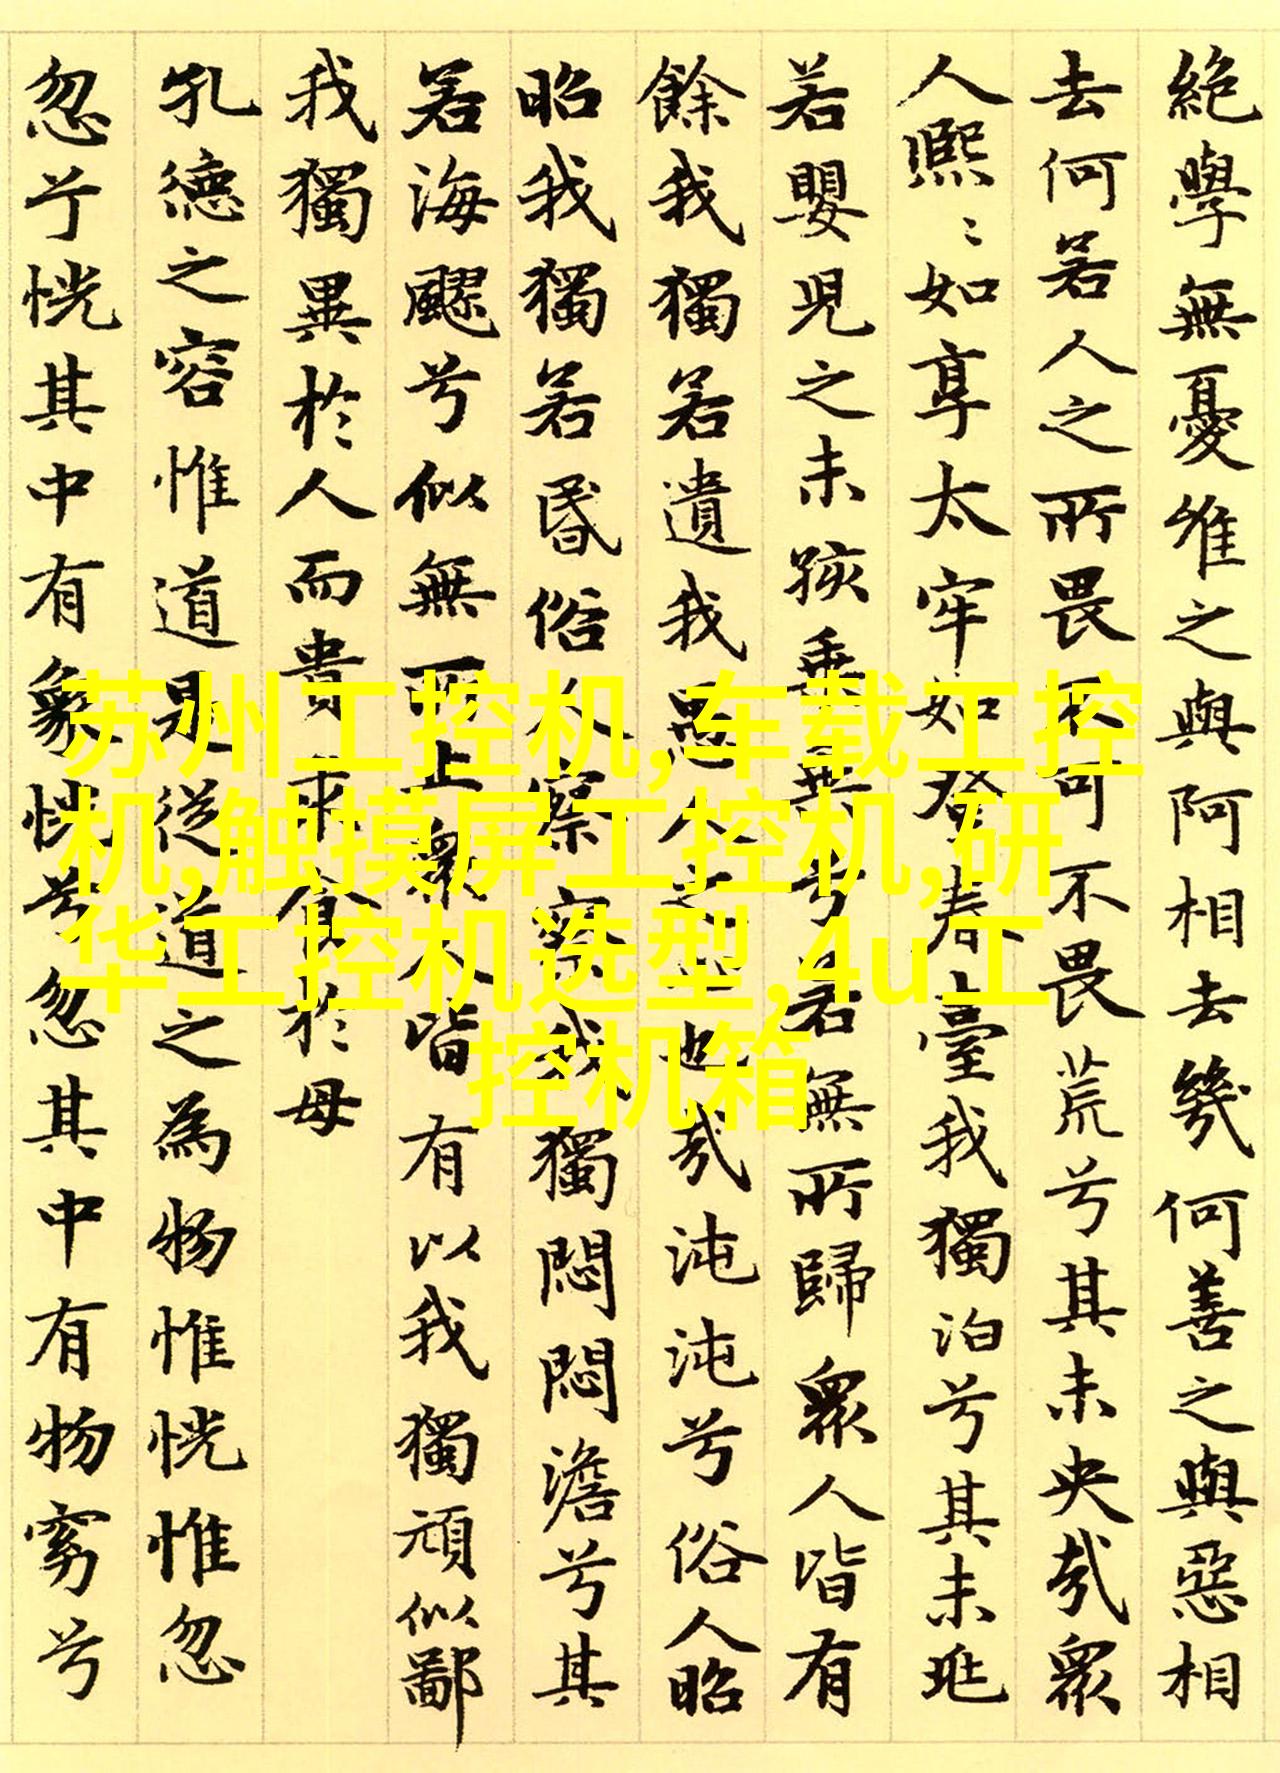 絶學無憂唯之與阿相去幾何善之與惡相
去何若人之所畏不可不畏荒兮其未央哉眾
人熙〻如享太牢如登春臺我獨泊兮其未兆
若嬰兒之未孩乗乗兮若無所歸眾人皆有
餘我獨若遺我愚人之心也哉沌沌兮俗人昭
昭我獨若昏俗人察察我獨悶悶澹兮其
若海飂兮似無所止衆人皆有以我獨頑似鄙
我獨異於人而貴求食於母
孔德之容惟道是從道之為物惟恍惟忽
忽兮恍其中有象恍兮忽其中有物窈兮
苏州工控机,车载工控
机,触摸屏工控机,研
华工控机选型,4u工
控机箱